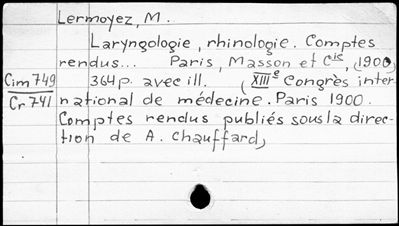 Lermoyez, M.
Laryngologie, rhinologie. Comptes
rendus... Paris, Masson et Cie, (1900)
Cim 749 364 p. avec ill. (XIIIe Congrès inter-
Cr 741 national de médecine. Paris 1900.
Comptes rendus publiés sous la direc-
tion de A. Chauffard)